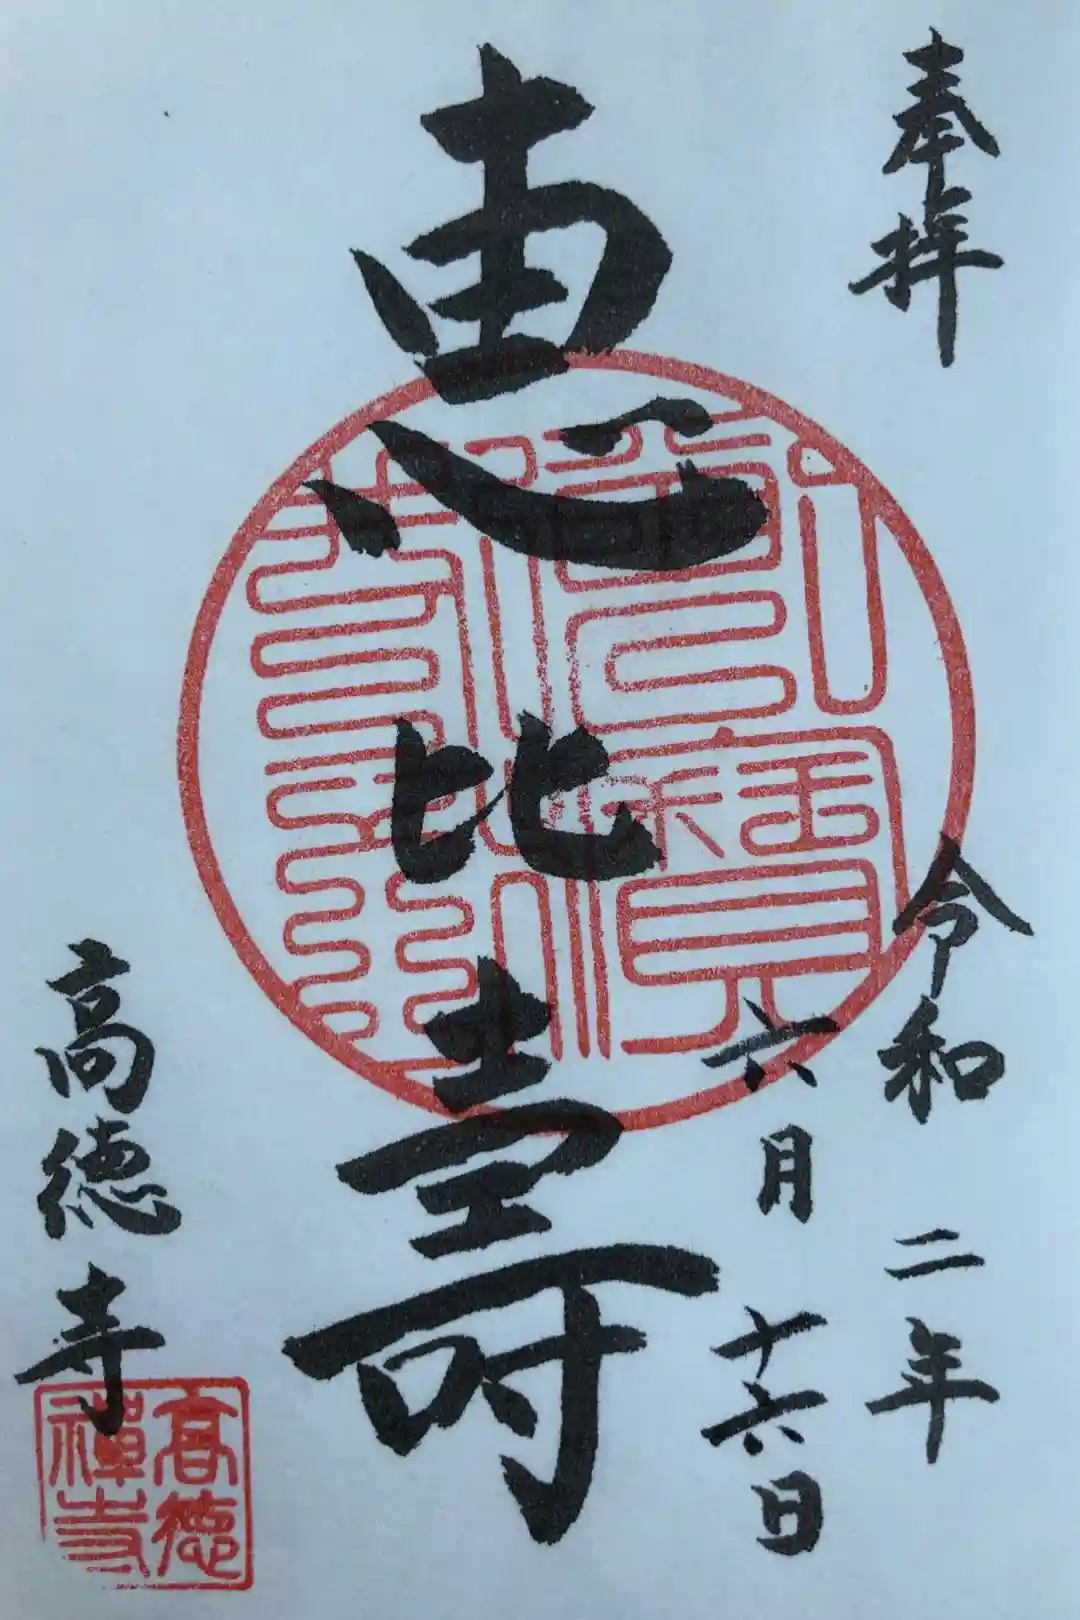 奉拝
令和二年
六月十六日
恵比寿
高徳寺
高徳禅寺